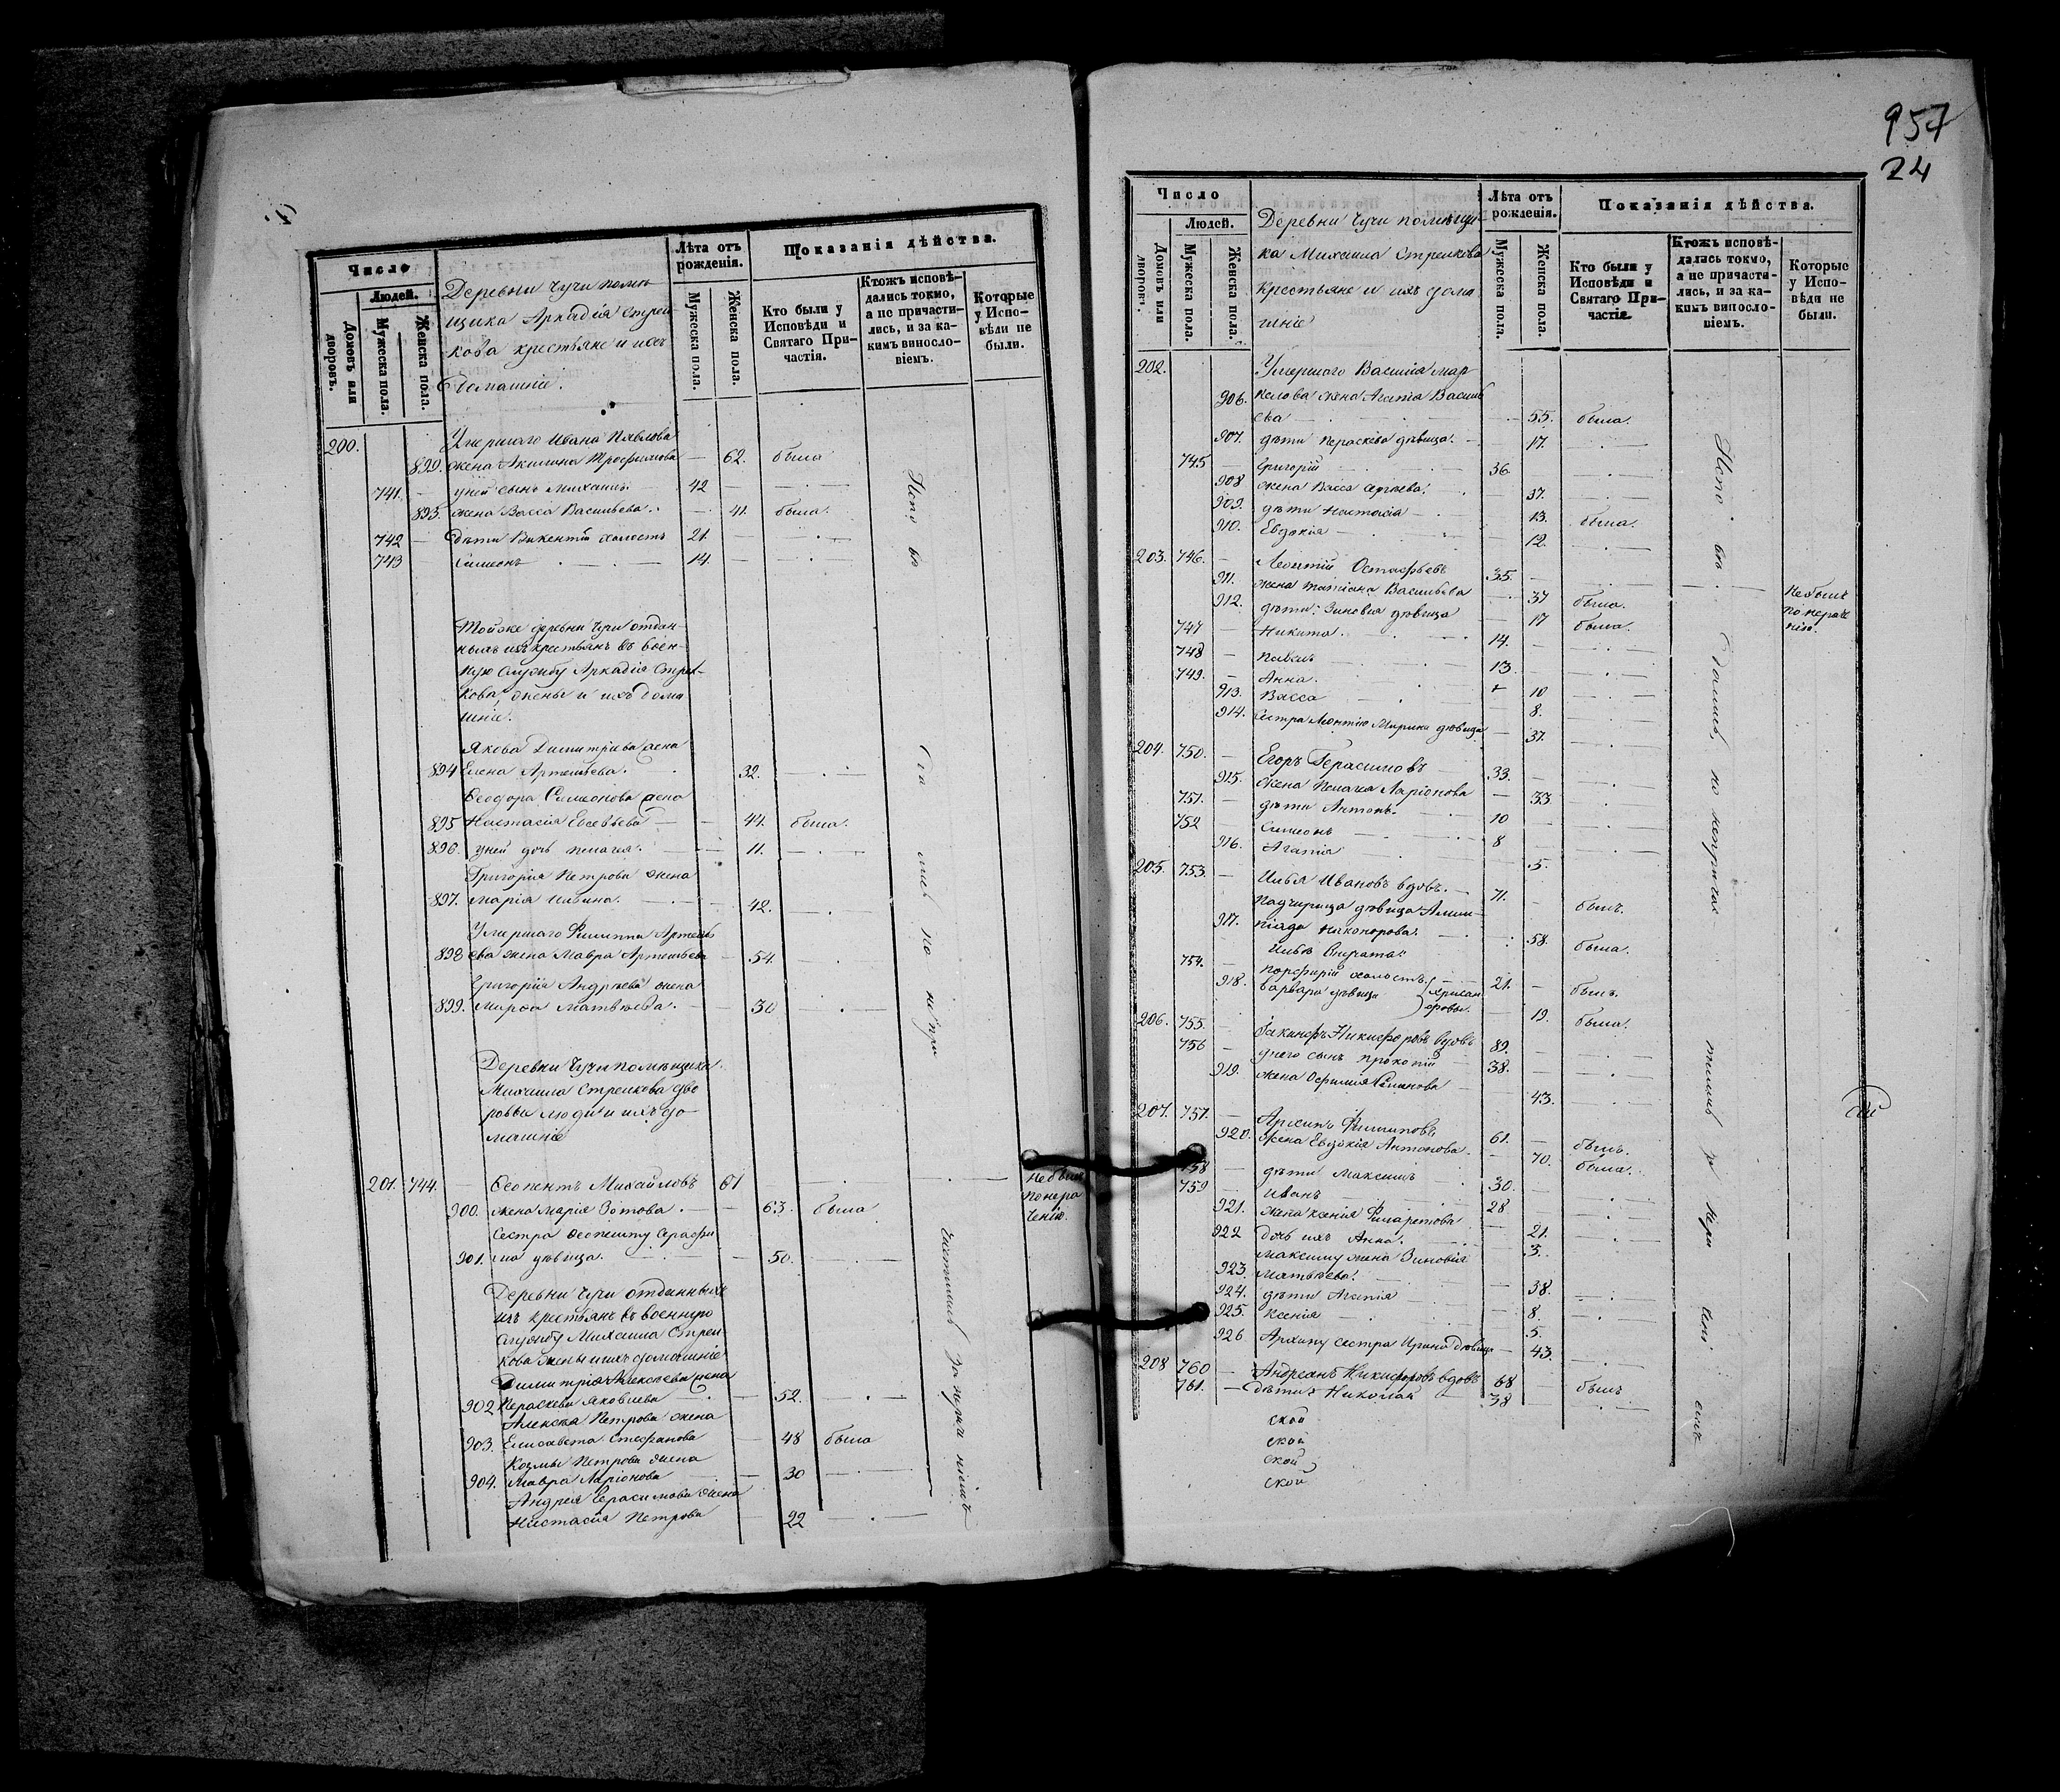 957
24
Число
Людей.
Домовъ или дворовъ.
Мужеска пола.
Женска пола.
Деревни Чучи помѣ
щика Аркадія Стрел
кова крестьяне и ихъ
домашніе.
Лѣта отъ рожденія.
Мужеска пола.
Женска пола.
Показанія дѣйства.
Кто были у Исповѣди и Святаго Причастія.
Ктожъ исповѣдались токмо, а не причастились, и за какимъ винословіемъ.
Которые у Исповѣди не были.
200. Умершаго Ивана Павлова
899. жена Акилина Трофимова — 62. была
741. — у ней сынъ Михаилъ 42 —
893. жена Васса Васильева. — 41. была.
742 — дѣти Викентій холостъ 21. —
743 Симеонъ 14. —
Тойже деревни Чучи отдан
ныхъ изъ крестьянъ въ воен
ную службу Аркадія Стрел
кова, жены и ихъ дома
шніе.
Якова Димитріева жена
894 Елена Артемьева. 32.
Ѳеодора Симеонова жена
895 Настасія Евсевьева — 44. была.
896. у ней дочь Пелагея. — 11.
Григорія Петрова жена
897. Марія Ильина. 42.
Умершаго Филиппа Артемь
898 ева жена Мавра Артемьева — 54.
Григорія Андреева жена
899. Марѳа Матвѣева. — 30
Деревни Чучи помѣщика
Михаила Стрелкова дво
ровыи люди и ихъ до
машніе
201. 744. — Ѳеопентъ Михайловъ 61 — Не былъ
по нера
ченію.
900. жена Марія Зотова. — 63. была
Сестра Ѳеопенту Серафи
901. ма дѣвица. — 50.
Деревни Чучи отданныхъ
изъ крестьянъ въ военную
службу Михаила Стрел
кова жены и ихъ домашніе
Димитрія Алексѣева жена
902 Пераскева Яковлева — 52.
Алексѣя Петрова жена
903. Елисавета Стефанова — 48 была
Козмы Петрова жена
904. Мавра Ларіонова — 30
Андрея Герасимова жена
Настасія Петрова — 22
Число
Людей.
Домовъ или дворовъ.
Мужеска пола.
Женска пола.
Деревни Чучи помѣщи
ка Михаила Стрелкова
крестьяне и ихъ дома
шніе
Лѣта отъ рожденія.
Мужеска пола.
Женска пола.
Показанія дѣйства.
Кто были у Исповѣди и Святаго Причастія.
Ктожъ исповѣдались токмо, а не причастились, и за какимъ винословіемъ.
Которые у Исповѣди не были.
202. Умершаго Василія Мар
906. келова жена Агапія Василь
ева — 55. была.
907. дѣти Пераскева дѣвица. — 17.
745 — Григорій 36.
908 жена Васса Сергѣева. 37.
909. дѣти Настасія — 13. была.
910. Евдокія — 12.
203. 746. — Леонтій Остафьевъ 35. — Не былъ
по нераче
нію.
911. жена Татіана Васильева — 37 была.
912. дѣти: Зиновія дѣвица — 17 была.
747 — Никита. 14.
748 — Павелъ 13
749. — Анна. — 10
913. Васса 8.
914. Сестра Леонтію Марина дѣвица — 37.
204. 750. — Егоръ Герасимовъ 33.
915. жена Пелагея Ларіонова — 33.
751. — дѣти Антонъ. 10
752 — Симеонъ 8
916. Агапія 5.
205. 753. — Илья Ивановъ вдовъ. 71. — былъ.
Падчерица дѣвица Алим
917. піада Никонорова. 58. была.
Ильѣ внучата:
754. — Порфирій холостъ } Хрисан 21. — былъ.
918. Варвара дѣвица } фовы. — 19. была.
206. 755. — Іакинфъ Никифоровъ вдовъ 89. —
756 — у него сынъ Прокопій 38. —
919. жена Ефимія Семенова — 43.
207. 757. — Архипъ Филиповъ 61. — былъ.
920. жена Евдокія Антонова. 70. была.
758 — дѣти Максимъ 30.
759 — Иванъ 28
921. жена Ксенія Филаретова — 21.
922 дочь ихъ Анна. — 3.
Максиму жена Зиновія
923. Матвѣева. — 38.
924. дѣти Агапія — 8.
925. Ксенія — 5.
926 Архипу сестра Ирина дѣвица — 43.
208 760 — Андреанъ Никифоровъ вдовъ 68 — былъ
761. — дѣти Николай 38 —
ской
ской
ской
ской